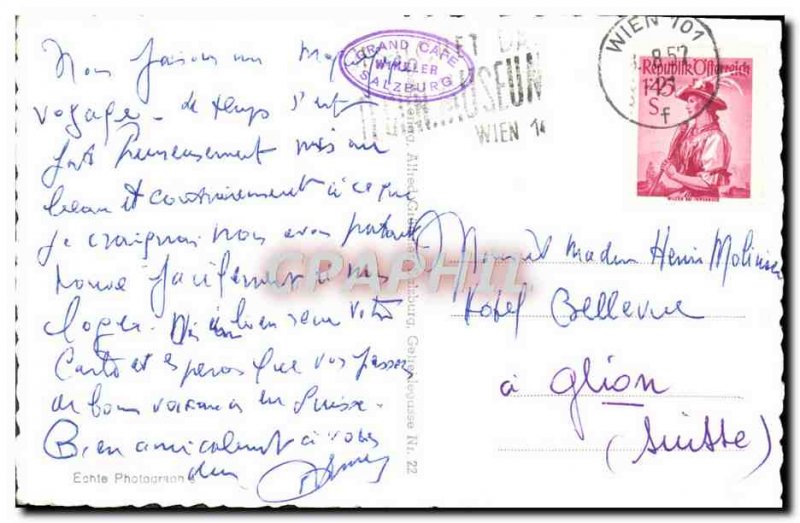 Nous faisons un
voyage. Le temps s'est
fort heureusement mis au
beau et contrairement à ce que
je craignais nous avons partout
trouvé facilement à nous
loger. bien reçu votre
Carte et espérons que vous passez
de bonnes vacances en Suisse.
Bien amicalement à vous
deux
Echte Photographie
GRAND CAFE
WINKLER
SALZBURG
ET DAS
MUSEUM
WIEN 14
WIEN 101
8.52
f
Republik Österreich
1'45
S
Verlag, Alfred Salzburg, Gehenlegasse Nr. 22
CPAPHIL
Monsieur et Madame Henri Molinier
Hotel Bellevue
à Glion
(Suisse)